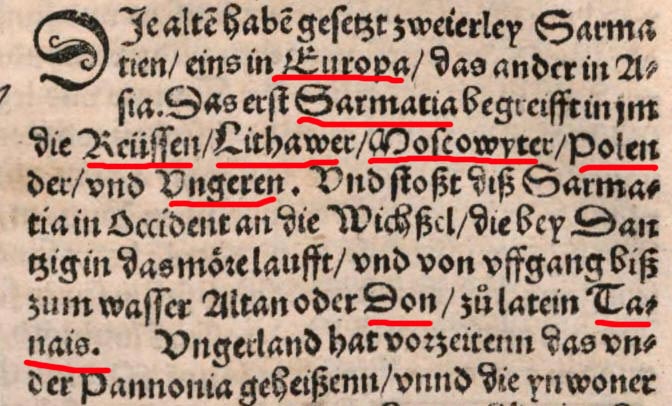 DJe altē habē gesetzt zweierley Sarma
tien/ eins in Europa/ das ander in A⸗
sia. Das erst Sarmatia begreifft in jm
die Reüssen/Lithawer/Moscowyter/Polen
der/vnd Vngeren. Vnd stoßt diß Sarma⸗
tia in Occident an die Wichßel/die bey Dan
tzig in das möre laufft/ vnd von vffgang biß
zum wasser Altan oder Don/ zů latein Ta⸗
nais. Vngerland hat vorzeitenn das vn⸗
der Pannonia geheißenn/vnnd die ynwoner